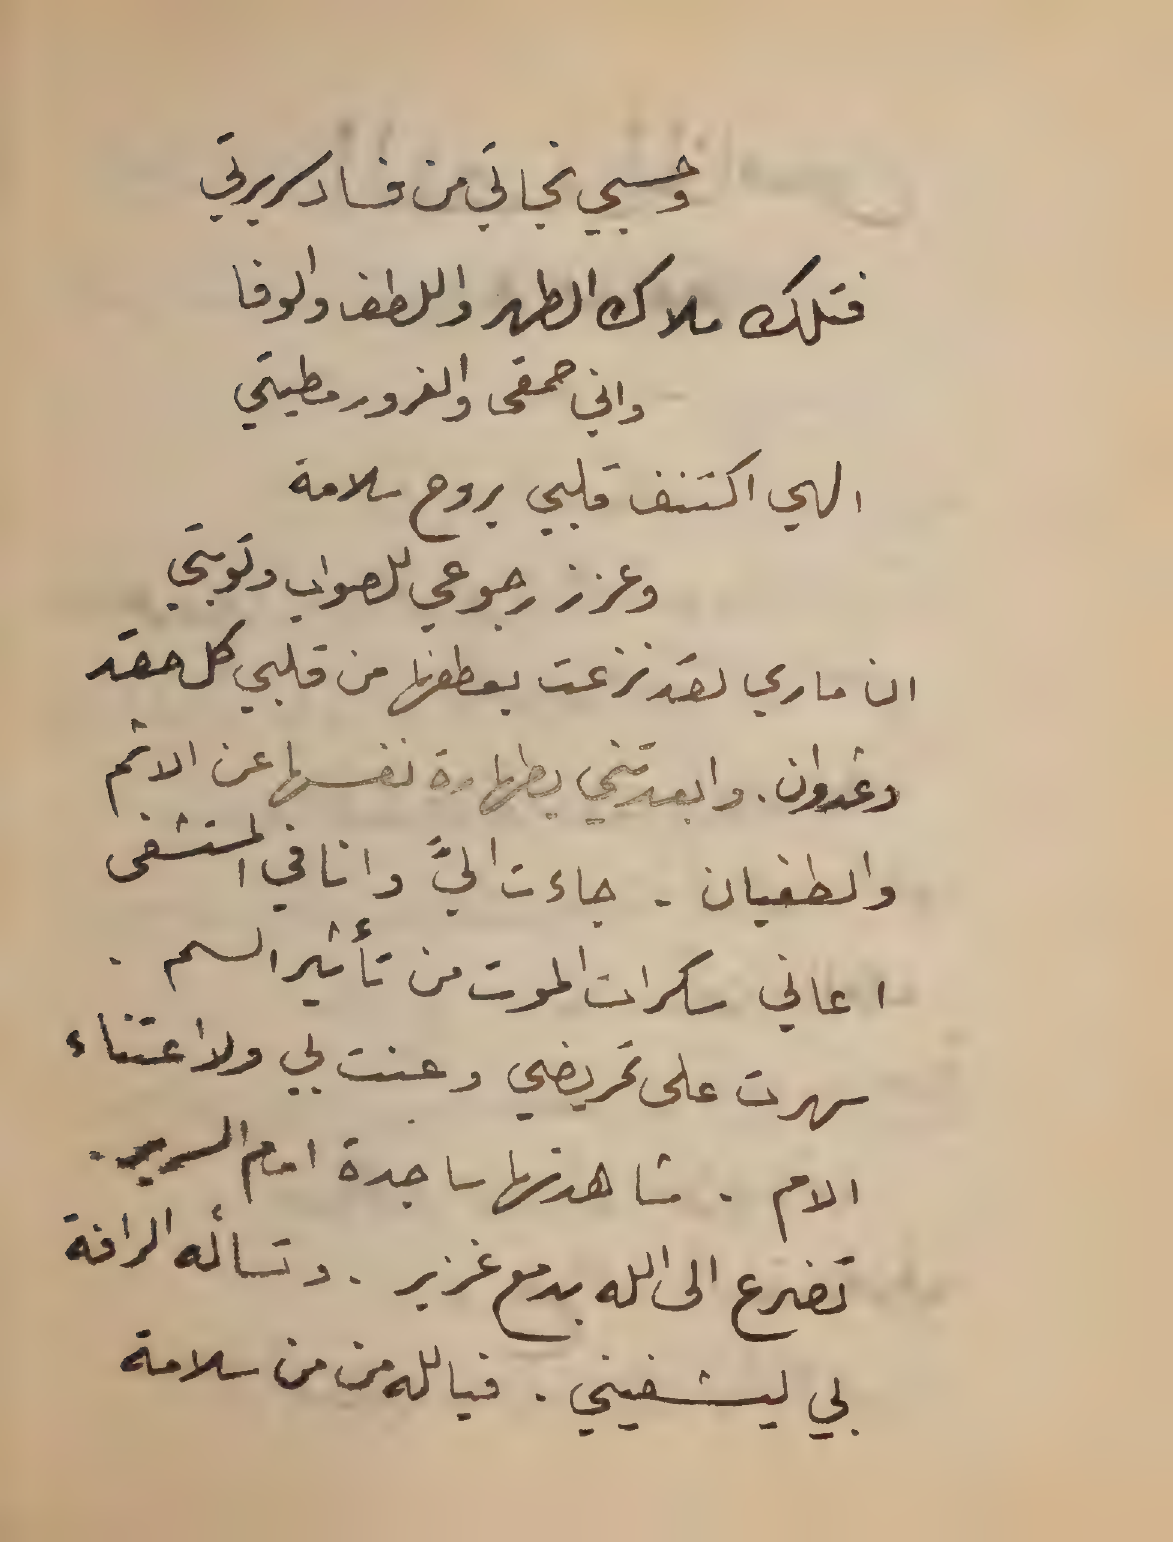 وحسبي نجاتي من فساد سريرتي
فتلك ملاك الطهر واللطف والوفا
واني حمقى والغرور مطيتي
الهي اكتنف قلبي بروح سلامة
وعزز رجوعي للصواب وتوبتي
ان ماري لقد نزعت بعطفها من قلبي كل حقد
وعدوان. وابعدتني بطهارة نفسها عن الاثم
والطغيان - جاءت اليَّ وانا في المستشفى
اعاني سكرات الموت من تأثير السم .
سهرت على تمريضي وعنت بي ولا عتناء
الام . شاهدتها ساجدة امام السرير .
تضرع الى الله بدمع غزير . وتسأله الرافة
بي ليشفيني . فيالله من من سلامة